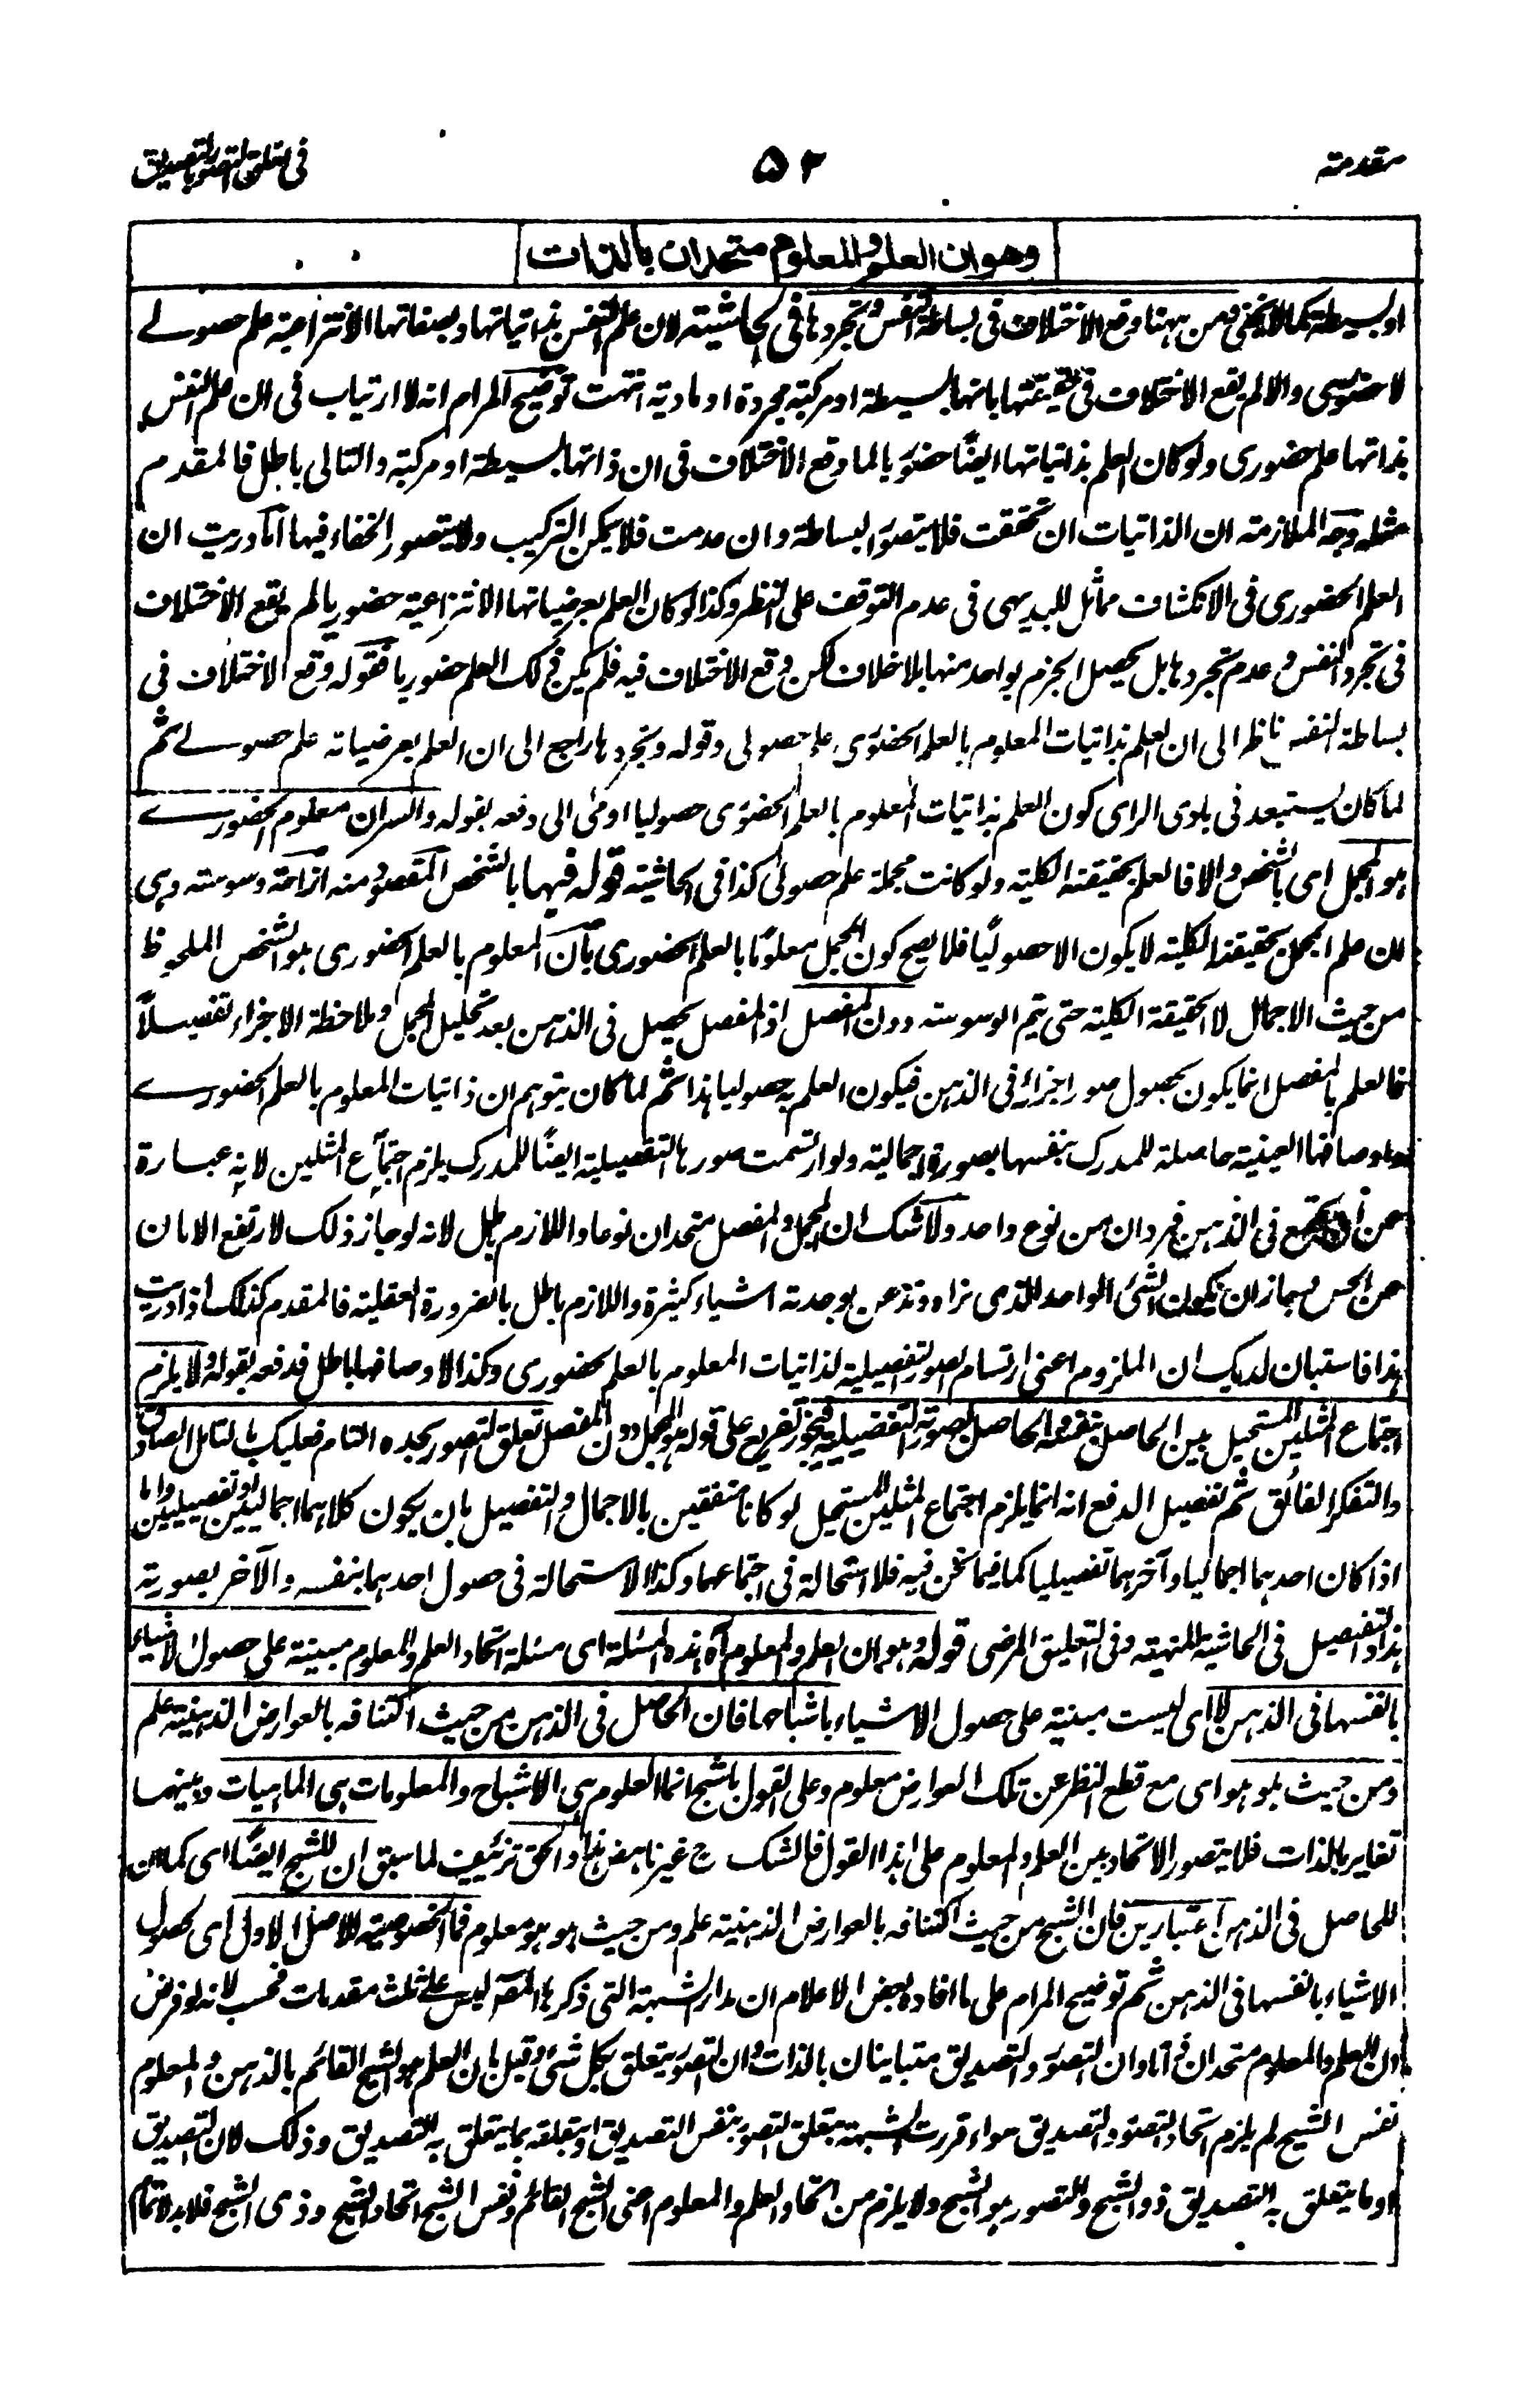 مقدمته
۵۲
فی تعلق التصور بالتصدیق
وهو ان العلم والمعلوم متحدان بالذات
او بسیطة کما لا یخفی ومن ههنا وقع الاختلاف فی بساطة النفس وتجردها فی الحاشیته لان علم النفس بذاتیاتها وبصفاتها الانتزاعیة علم حصولے
لا حضوری والا لم یقع الاختلاف فی حقیقتها بانها بسیطة او مرکبة مجردة او مادیة انتهت توضیح المرام انه لا ارتیاب فی ان علم النفس
بذاتها علم حضوری ولو کان العلم بذاتیاتها ایضًا حضوریا لما وقع الاختلاف فی ان ذاتها بسیطة او مرکبة والتالی باطل فالمقدم
مثله وجه الملازمة ان الذاتیات ان تحققت فلا یتصور البساطة وان عدمت فلا یمکن الترکیب ولا یتصور الخفاء فیها اما دریت ان
العلم الحضوری فی الانکشاف مماثل للبدیهی فی عدم التوقف علی النظر وکذا لو کان العلم بعرضیاتها الانتزاعیة حضوریا لم یقع الاختلاف
فی تجرد النفس وعدم تجردها بل یحصل الجزم بواحد منها بلا خلاف لکن وقع الاختلاف فیه فلم یکن ذلک العلم حضوریا فقوله وقع الاختلاف فی
بساطة النفس ناظر الی ان العلم بذاتیات المعلوم بالعلم الحضوری علم حصولی وقوله وتجردها راجع الی ان العلم بعرضیاته علم حصولے ثم
لما کان یستبعد فی بادی الرای کون العلم بذاتیات المعلوم بالعلم الحضوری حصولیا اومی الی دفعه بقوله والسران معلوم الحضورے
هو المجمل ای بالشخص والا فالعلم بحقیقته الکلیة ولو کانت مجملة علم حصولی کذا فی الحاشیته قوله فیها بالشخص المقصود منه ازاحة وسوسته وهی
ان علم المجمل بحقیقته الکلیة لا یکون الا حصولیًا فلا یصح کون المجمل معلومًا بالعلم الحضوری بان المعلوم بالعلم الحضوری هو الشخص الملحوظ
من حیث الاجمال لا الحقیقة الکلیة حتی یتم الوسوسته دون المفصل اذ المفصل یحصل فی الذهن بعد تحلیل المجمل وملاحظة الاجزاء تفصیلاً
فالعلم بالمفصل انما یکون بحصول صور اجزائه فی الذهن فیکون العلم به حصولیا هذا ثم لما کان یتوهم ان ذاتیات المعلوم بالعلم الحضورے
واوصافها العینیة حاصلة للمدرک بنفسها بصورة اجمالیة ولو ارتسمت صورها التفصیلیة ایضًا للمدرک یلزم اجتماع المثلین لانه عبارة
عن ان یجتمع فی الذهن فردان من نوع واحد ولا شک ان المجمل والمفصل متحدان نوعا واللازم باطل لانه لو جاز ذلک لارتفع الامان
عن الحس فجاز ان تکون الشئ الواحد الذی نراه ونذعن بوحدته اشیاء کثیرة واللازم باطل بالضرورة العقلیة فالمقدم کذلک اذا دریت
هذا فاستبان لدیک ان الملزوم اعنی ارتسام الصور التفصیلیة لذاتیات المعلوم بالعلم الحضوری وکذا لاوصافها باطل فدفعه بقوله ولا یلزم
اجتماع المثلین المستحیل بین الحاصل بنفسه والحاصل بصورته التفصیلیة فیجوز تفریع علی قوله هو المجمل دون المفصل تعلق التصور بحده التام فعلیک بالتامل الصادق
والتفکر الفائق ثم تفصیل الدفع انه انما یلزم اجتماع المثلین المستحیل لو کانا متفقین بالاجمال والتفصیل بان یکون کلاهما اجمالیین او تفصیلیین واما
اذا کان احدهما اجمالیا وآخرهما تفصیلیا کما فیما نحن فیه فلا استحالة فی اجتماعهما وکذا لا استحالة فی حصول احدهما بنفسه والآخر بصورته
هذا والتفصیل فی الحاشیة المنهیة وفی التعلیق المرضی قوله وهو ان العلم والمعلوم آه هذه المسئلة ای مسئلة اتحاد العلم والمعلوم مبینیة علی حصول الاشیاء
بانفسها فی الذهن لا ای لیست مبنیة علی حصول الاشیاء باشباحها فان الحاصل فی الذهن من حیث اکتنافه بالعوارض الذهنیة علم
ومن حیث هو هو ای مع قطع النظر عن تلک العوارض معلوم وعلی القول بالشبح انما العلوم هی الاشباح والمعلومات هی الماهیات وبینهما
تغایر بالذات فلا یتصور الاتحاد بین العلم والمعلوم علی هذا القول فالشک ح غیر ناهض هذا والحق تزئیف لما سبق ان للشبح ایضًا ای کما ان
للحاصل فی الذهن اعتبارین فان الشبح من حیث اکتنافه بالعوارض الذهنیة علم ومن حیث هو هو معلوم فما الخصوصیة للاصل الاول ای حصول
الاشیاء بانفسها فی الذهن ثم توضیح المرام علی ما افاده بعض الاعلام ان مدار الشبهة التی ذکرها المصر لیس علی ثلث مقدمات فحسب لانه لو فرض
ان العلم والمعلوم متحدان ذاتا وان التصور والتصدیق متباینان بالذات وان التصور یتعلق بکل شئ وقیل بان العلم هو الشبح القائم بالذهن والمعلوم
نفس الشبح لم یلزم اتحاد التصور والتصدیق سواء قررت الشبهة بتعلق التصور بنفس التصدیق او بتعلقه بما یتعلق به التصدیق وذلک لان التصدیق
او ما یتعلق به التصدیق ذو الشبح والتصور هو الشبح ولا یلزم من اتحاد العلم والمعلوم اعنی الشبح القائم ونفس الشبح اتحاد الشبح وذی الشبح فلا بد لاتمام